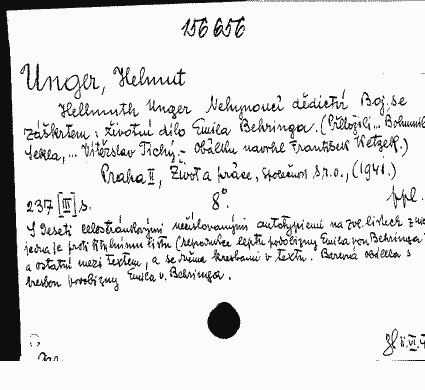 156656
Unger, Helmut
Hellmuth Unger Nehynoucí dědictví Boj se
záškrtem: životní dílo Emila Behringa. (Přeložili... Bohumil
Sekla,... Vítězslav Tichý.- Obálku navrhl František Ketzek.)
Praha II, Život a práce, společnost s.r.o., (1941.)
237 [III] s. 8°. ppl.
S deseti celostránkovými nečíslovanými autotypiemi na zvl. listech z nichž
jedna je proti titulnímu listu (reprodukce leptu podobizny Emila von Behringa
a ostatní mezi textem, a se dvěma kresbami v textu. Barevná obálka s
kresbou podobizny Emila v. Behringa.